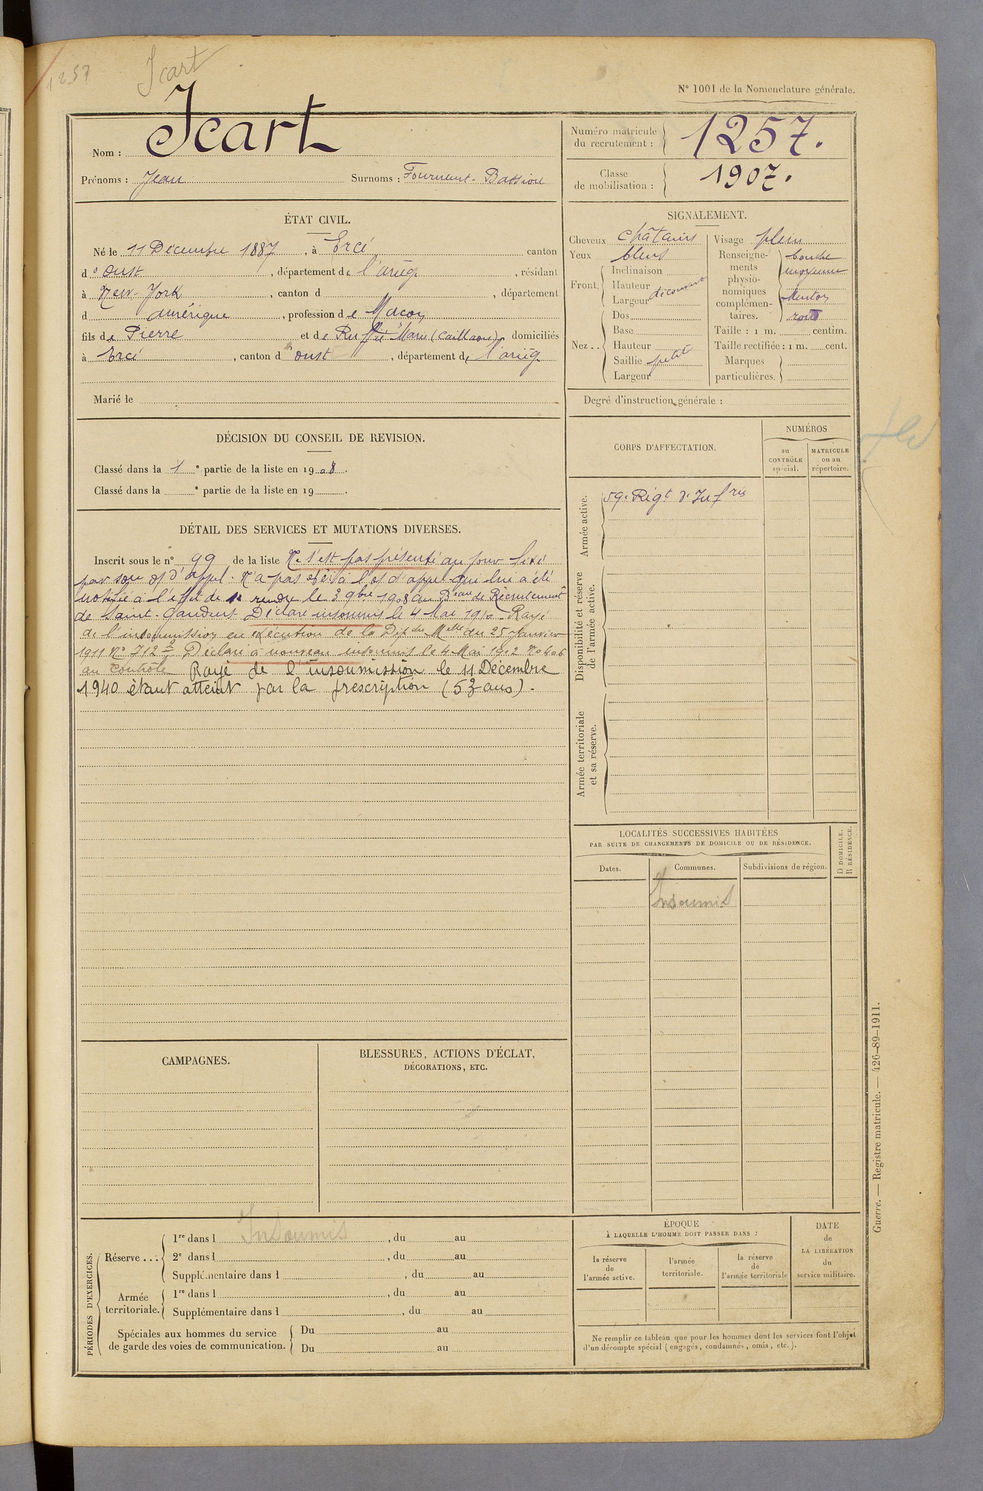 1257
Icart
N° 1001 de la Nomenclature générale.
Nom : Icart
Prénoms : Jean Surnoms : Bassiou
Numéro matricule du recrutement : 1257.
Classe de mobilisation : 1907.
ÉTAT CIVIL.
Né le 11 Décembre 1887, à Ercé canton
d'Oust, département de l'ariège, résidant
à New-York, canton d , département
d amérique, profession de Maçon
fils de Pierre et de Marie (Caillaou) domiciliés
à Ercé, canton d'oust, département de l'ariège
Marié le
SIGNALEMENT.
Cheveux châtains
Yeux bleus
Front. Inclinaison
Hauteur
Largeur découvert
Nez.. Dos
Base
Hauteur
Saillie petit
Largeur
Visage plein
Renseignements physionomiques complémentaires. bouche
moyenne
Menton
rond
Taille : 1 m. centim.
Taille rectifiée : 1 m. cent.
Marques particulières.
Degré d'instruction générale :
DÉCISION DU CONSEIL DE REVISION.
Classé dans la 1 e partie de la liste en 1908.
Classé dans la e partie de la liste en 19 .
DÉTAIL DES SERVICES ET MUTATIONS DIVERSES.
Inscrit sous le n° 99 de la liste Ne s'est pas présenté au jour fixé
par son o. d'appel. N'a pas obéi à l'o. d'appel qui lui a été
notifié à l'effet de se rendre le 3 9bre 1908 au Beau de Recrutement
de Saint-Gaudens Déclaré insoumis le 4 Mai 1910 Rayé
de l'insoumission en exécution de la Dép. Melle du 25 Janvier
1911 N° 712 Déclaré à nouveau insoumis le 4 Mai
au Controle Rayé de l'insoumission le 11 Décembre
1940 étant atteint par la prescription (53 ans).
CORPS D'AFFECTATION.
NUMÉROS
au CONTRÔLE spécial.
MATRICULE ou au répertoire.
Armée active.
59e Régt d'Infrie
Disponibilité et réserve de l'armée active.
Armée territoriale et sa réserve.
LOCALITÉS SUCCESSIVES HABITÉES
PAR SUITE DE CHANGEMENTS DE DOMICILE OU DE RÉSIDENCE.
Dates.
Communes.
Subdivisions de région.
D DOMICILE. R RÉSIDENCE.
Insoumis
CAMPAGNES.
BLESSURES, ACTIONS D'ÉCLAT,
DÉCORATIONS, ETC.
PÉRIODES D'EXERCICES.
Insoumis
Réserve... 1re dans l , du au
2e dans l , du au
Supplémentaire dans l , du au
Armée territoriale. 1re dans l , du au
Supplémentaire dans l , du au
Spéciales aux hommes du service de garde des voies de communication. Du au
Du au
ÉPOQUE
À LAQUELLE L'HOMME DOIT PASSER DANS :
la réserve de l'armée active.
l'armée territoriale.
la réserve de l'armée territoriale
DATE DE LA LIBÉRATION du service militaire.
Ne remplir ce tableau que pour les hommes dont les services font l'objet
d'un décompte spécial (engagés, condamnés, omis, etc.).
Guerre. — Registre matricule. — 426-89-1911.